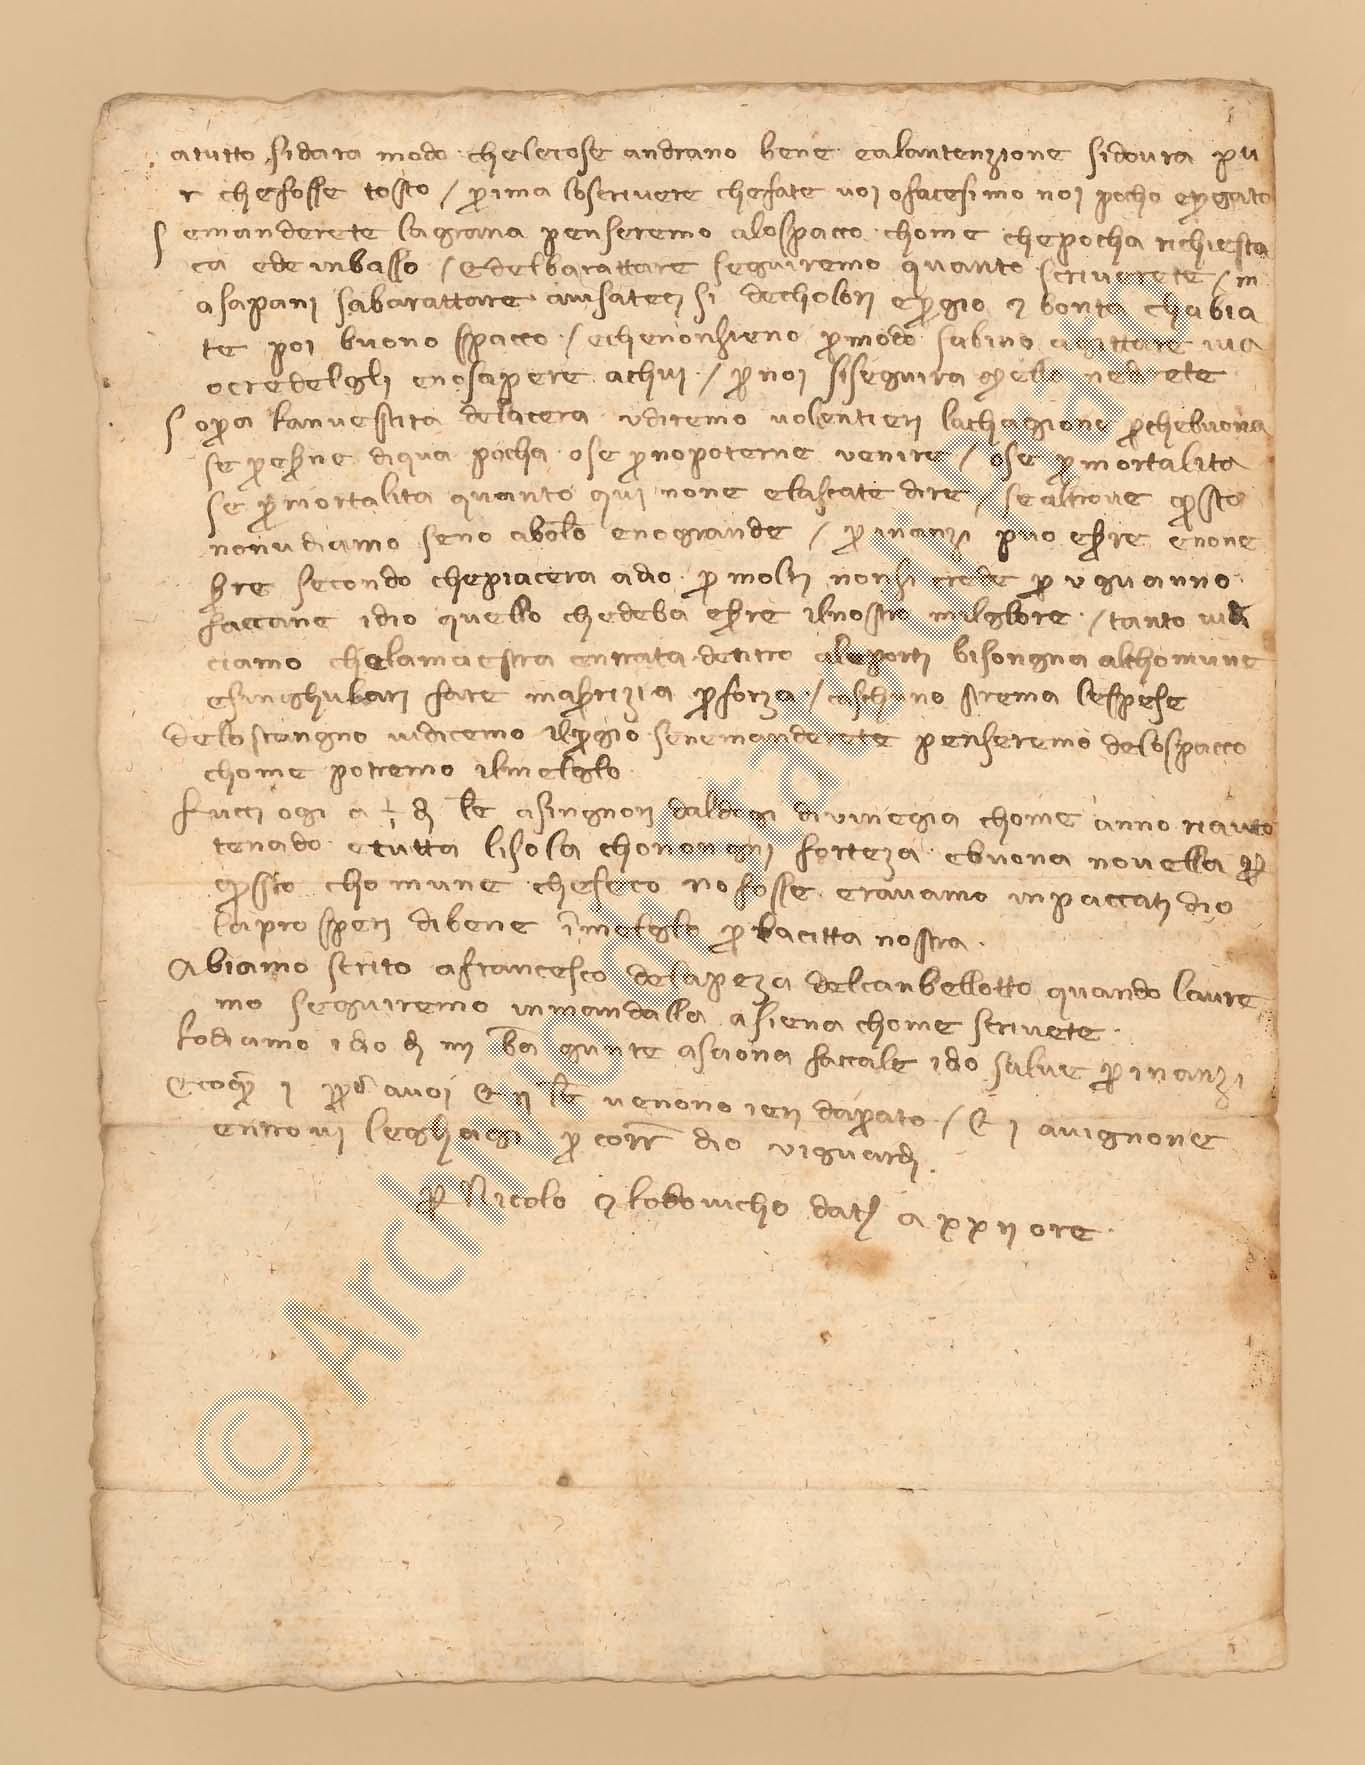 atutto sidara modo chelecose andrano bene ealantenzione sidovra pu
r chefosse tosto / p̱rima loscrivere chefate voi ofacesimo noi pocho
emanderete lagrana penseremo alospacco chome chepocha richiesta
ca ede inbasso / edelbarattare seguiremo quanto scriverete / in
asapani sabarattare avisateci si decholori ep̱gio e bonta chabia
te poi buono spacco / echenonsieno p̱ modo sabino agittare via
ocredelgli enosapere achui / p̱ noi siseguira nedirete
op̱a lanvestita delacera udiremo volentieri lachagione p̱chebuona
se p̱ diqua pocha ose p̱ nopoterne venire / ose p̱ mortalita
se p̱ mortalita quanto qui none elasciate dire / sealtrove
nonudiamo seno abolo enogrande / p̱ inanzi puo esere enone
sere secondo chepiacera adio p̱ molti nonsi crede p̱ uguanno
faccane idio quello chedeba esere ilnostro milglore / tanto vidi
ciamo chelamaestra entrata dentro aleporti bisongna alchomune
esinghulari fare p̱ forza / caschuno strema lespese
delostangno vidicemo ilp̱gio senemanderete penseremo delospacco
chome potremo ilmelglo
Fucci ogi a di lr̄e asingnori daldogi divinegia chome anno riauto
tenado etutta lisola chonongni forteza ebuona novella
chomune chefeco nofosse eravamo inpaccati dio
laprosperi dibene i̅melglo p̱ lacitta nostra
Abiamo scrito afrancesco delapeza delcanbellotto quando lavre
mo seguiremo inmandalla asiena chome scrivete
Lodiamo idio di iiij ba gunte asaona faccale ido salve p̱ inanzi
E i avoi e ij lr̄e venono ieri dap̱ato / E i avignone
entrovi leghagi p̱ corr dio viguardi
P̱ Nicolo e lodovicho dati a ore
© Archivio di Stato di Prato